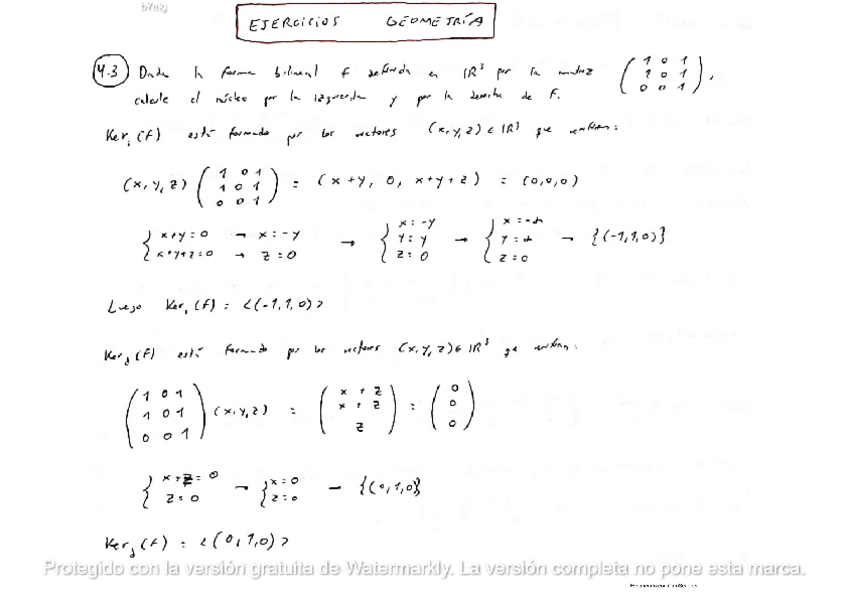 b7aig
EJERCICIOS GEOMETRÍA
4.3 Dada la forma bilineal f definida en IR³ por la matriz (1 0 1
1 0 1
0 0 1),
calcule el núcleo por la izquierda y por la derecha de F.
Ker_i (f) está formado por los vectores (x,y,z) ∈ IR³ que verifican:
(x,y,z) (1 0 1
1 0 1
0 0 1) = (x+y, 0, x+y+z) = (0,0,0)
{ x+y=0 → x=-y
x+y+z=0 → z=0 → { x=-y
y=y
z=0 → { x=-α
y=α
z=0 → {(-1,1,0)}
Luego Ker_i (f) = <(-1,1,0)>
Ker_d (f) está formado por los vectores (x,y,z) ∈ IR³ que verifican:
(1 0 1
1 0 1
0 0 1) (x,y,z) = (x+z
x+z
z) = (0
0
0)
{ x+z=0
z=0 → { x=0
z=0 — {(0,1,0)}
Ker_d (f) = <(0,1,0)>
Protegido con la versión gratuita de Watermarkly. La versión completa no pone esta marca.